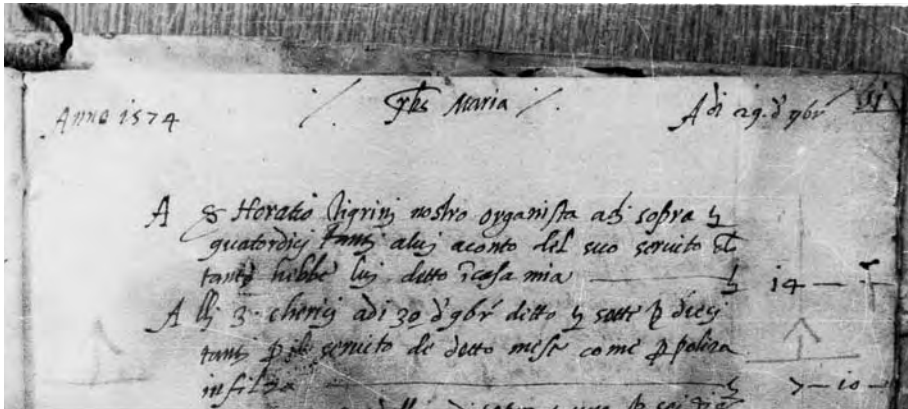 Anno 1574 ./. yhs Maria ./. Adi 29. d 9br 51
A Horatio tigrinj nostro organista adj sopra
quatordicj tantj aluj aconto del suo seruito
tantj hebbe luj ditto ĩcasa mia 14 —
A llj 3. chericj adi 30 d' 9br ditto sette diecj
tantj p il seruito de detto mese come p poliza
in filza 7 — 10 —